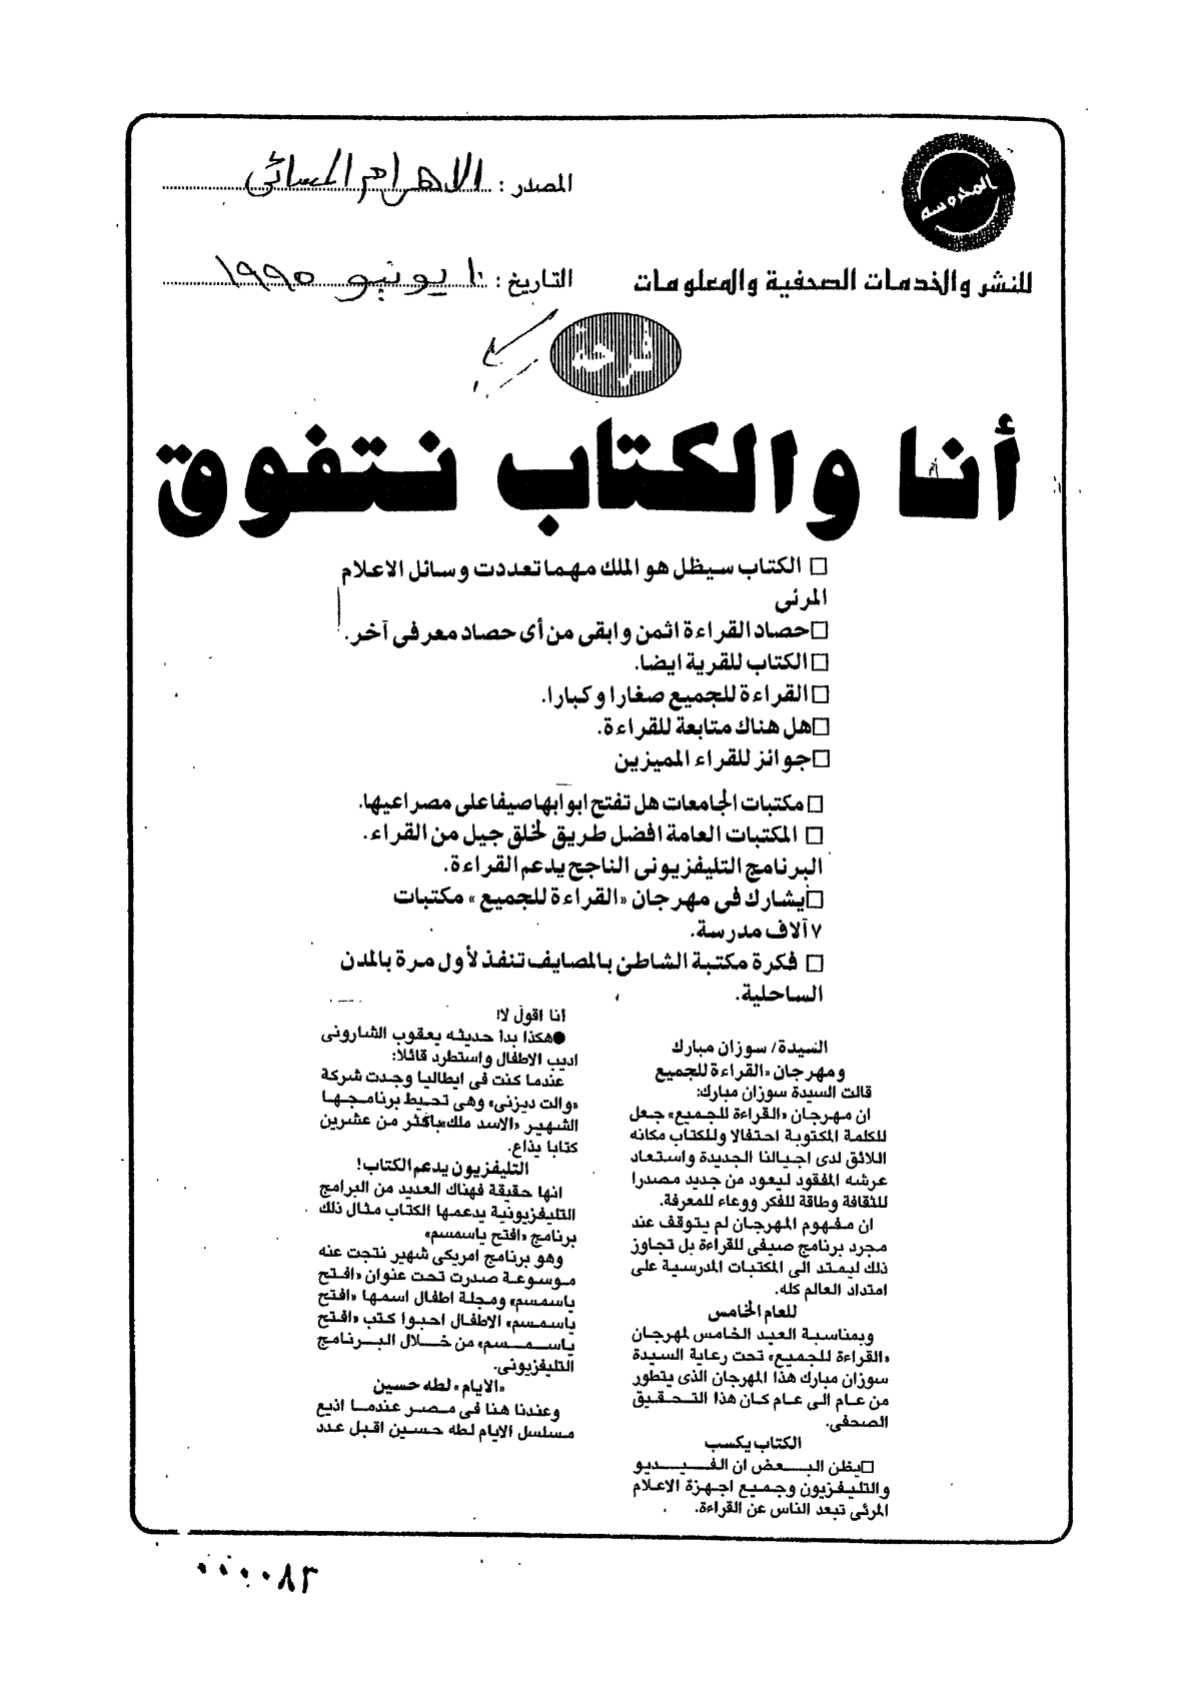 المحروسة
المصدر : الاهرام المسائى
للنشر والخدمات الصحفية والمعلومات
التاريخ : ١٠ يونيو ١٩٩٥
فرحة
أنا والكتاب نتفوق
□ الكتاب سيظل هو الملك مهما تعددت وسائل الاعلام
المرئى
□ حصاد القراءة اثمن وابقى من أى حصاد معرفى آخر.
□ الكتاب للقرية ايضا.
□ القراءة للجميع صغارا وكبارا.
□ هل هناك متابعة للقراءة.
□ جوائز للقراء المميزين
□ مكتبات الجامعات هل تفتح ابوابها صيفا على مصراعيها.
□ المكتبات العامة افضل طريق لخلق جيل من القراء.
البرنامج التليفزيونى الناجح يدعم القراءة.
□ يشارك فى مهرجان «القراءة للجميع» مكتبات
٧ آلاف مدرسة.
□ فكرة مكتبة الشاطئ بالمصايف تنفذ لأول مرة بالمدن
الساحلية.
السيدة/ سوزان مبارك
ومهرجان «القراءة للجميع
قالت السيدة سوزان مبارك:
ان مهرجان «القراءة للجميع» جعل
للكلمة المكتوبة احتفالا وللكتاب مكانه
اللائق لدى اجيالنا الجديدة واستعاد
عرشه المفقود ليعود من جديد مصدرا
للثقافة وطاقة للفكر ووعاء للمعرفة.
ان مفهوم المهرجان لم يتوقف عند
مجرد برنامج صيفى للقراءة بل تجاوز
ذلك ليمتد الى المكتبات المدرسية على
امتداد العالم كله.
للعام الخامس
وبمناسبة العيد الخامس لمهرجان
«القراءة للجميع» تحت رعاية السيدة
سوزان مبارك هذا المهرجان الذى يتطور
من عام الى عام كان هذا التحقيق
الصحفى.
الكتاب يكسب
□ يظن البعض ان الفيديو
والتليفزيون وجميع اجهزة الاعلام
المرئى تبعد الناس عن القراءة.
أنا اقول لا!
● هكذا بدأ حديثه يعقوب الشارونى
اديب الاطفال واستطرد قائلا:
عندما كنت فى ايطاليا وجدت شركة
«والت ديزنى» وهى تحيط برنامجها
الشهير «الاسد ملك» باكثر من عشرين
كتابا يذاع.
التليفزيون يدعم الكتاب!
انها حقيقة فهناك العديد من البرامج
التليفزيونية يدعمها الكتاب مثال ذلك
برنامج «افتح ياسمسم»
وهو برنامج امريكى شهير نتجت عنه
موسوعة صدرت تحت عنوان «افتح
ياسمسم» ومجلة اطفال اسمها «افتح
ياسمسم» الاطفال احبوا كتب «افتح
ياسمسم» من خلال البرنامج
التليفزيونى.
«الايام» لطه حسين
وعندنا هنا فى مصر عندما اذيع
مسلسل الايام لطه حسين اقبل عدد
٠٠٠٠٨٣